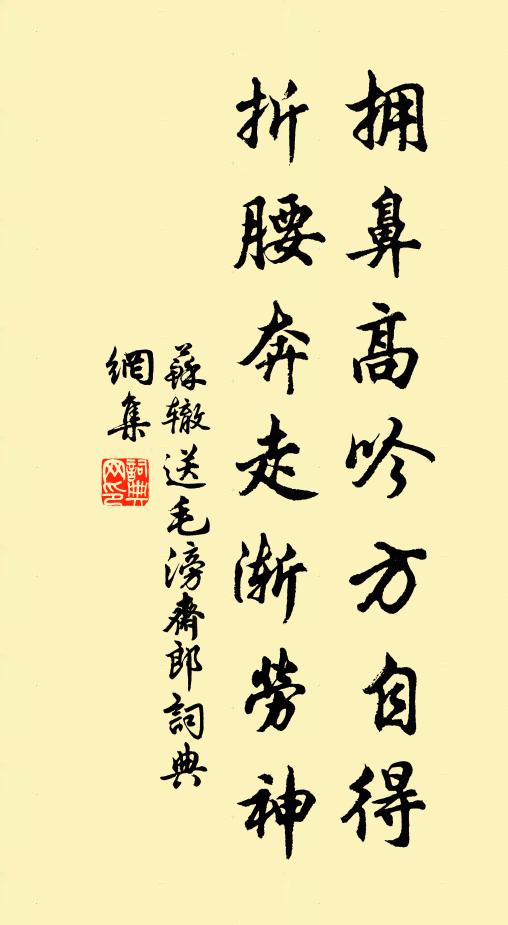 拥鼻高吟方自得
折腰奔走漸劳神
蘇辙送毛滂齋郎詞典
網集
詞典網印